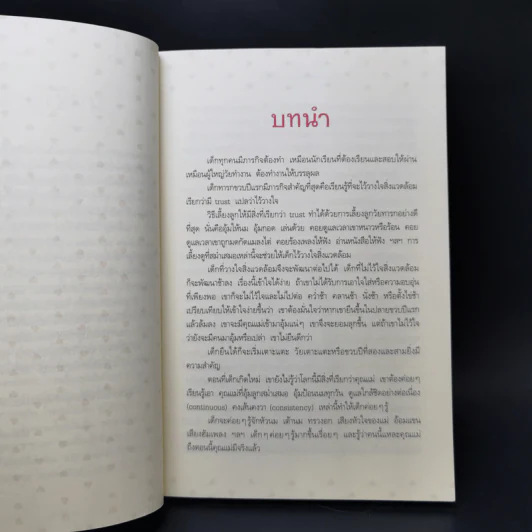 บทนำ
เด็กทุกคนมีภารกิจต้องทำ เหมือนนักเรียนที่ต้องเรียนและสอบให้ผ่าน
เหมือนผู้ใหญ่วัยทำงาน ต้องทำงานให้บรรลุผล
เด็กทารกขวบปีแรกมีภารกิจสำคัญที่สุดคือเรียนรู้ที่จะไว้วางใจสิ่งแวดล้อม
เรียกว่ามี trust แปลว่าไว้วางใจ
วิธีเลี้ยงลูกให้มีสิ่งที่เรียกว่า trust ทำได้ด้วยการเลี้ยงลูกวัยทารกอย่างดี
ที่สุด นั่นคืออุ้มให้นม อุ้มกอด เล่นด้วย คอยดูแลเวลาเขาหนาวหรือร้อน คอย
ดูแลเวลาเขาถูกมดกัดแมลงไต่ คอยร้องเพลงให้ฟัง อ่านหนังสือให้ฟัง ฯลฯ การ
เลี้ยงดูที่สม่ำเสมอเหล่านี้จะช่วยให้เด็กไว้วางใจสิ่งแวดล้อม
เด็กที่วางใจสิ่งแวดล้อมจึงจะพัฒนาต่อไปได้ เด็กที่ไม่ไว้ใจสิ่งแวดล้อม
ก็จะพัฒนาช้าลง เรื่องนี้เข้าใจได้ง่าย ถ้าเขาไม่ได้รับการเอาใจใส่หรือความอบอุ่น
ที่เพียงพอ เขาก็จะไม่ไว้ใจและไม่ไปต่อ คว่ำช้า คลานช้า นั่งช้า หรือตั้งไข่ช้า
เปรียบเทียบให้เข้าใจง่ายขึ้นว่า เขาต้องมั่นใจว่าหากเขายืนขึ้นในปลายขวบปีแรก
แล้วล้มลง เขาจะมีคุณแม่เข้ามาอุ้มแน่ๆ เขาจึงจะยอมลุกขึ้น แต่ถ้าเขาไม่ไว้ใจ
ว่ายังจะมีคนมาอุ้มหรือเปล่า เขาไม่ยืนดีกว่า
เด็กยืนได้ก็จะเริ่มเตาะแตะ วัยเตาะแตะหรือขวบปีที่สองและสามยิ่งมี
ความสำคัญ
ตอนที่เด็กเกิดใหม่ เขายังไม่รู้ว่าโลกนี้มีสิ่งที่เรียกว่าคุณแม่ เขาต้องค่อยๆ
เรียนรู้เอา คุณแม่ที่อุ้มลูกสม่ำเสมอ อุ้มป้อนนมทุกวัน ดูแลใกล้ชิดอย่างต่อเนื่อง
(continuous) คงเส้นคงวา (consistency) เหล่านี้ทำให้เด็กค่อยๆ รู้
เด็กจะค่อยๆ รู้จักหัวนม เต้านม ทรวงอก เสียงหัวใจของแม่ อ้อมแขน
เสียงฮัมเพลง ฯลฯ เด็กๆ ค่อยๆ รู้มากขึ้นเรื่อยๆ และรู้ว่าคนนี้แหละคุณแม่
ถึงตอนนี้คุณแม่มีจริงแล้ว